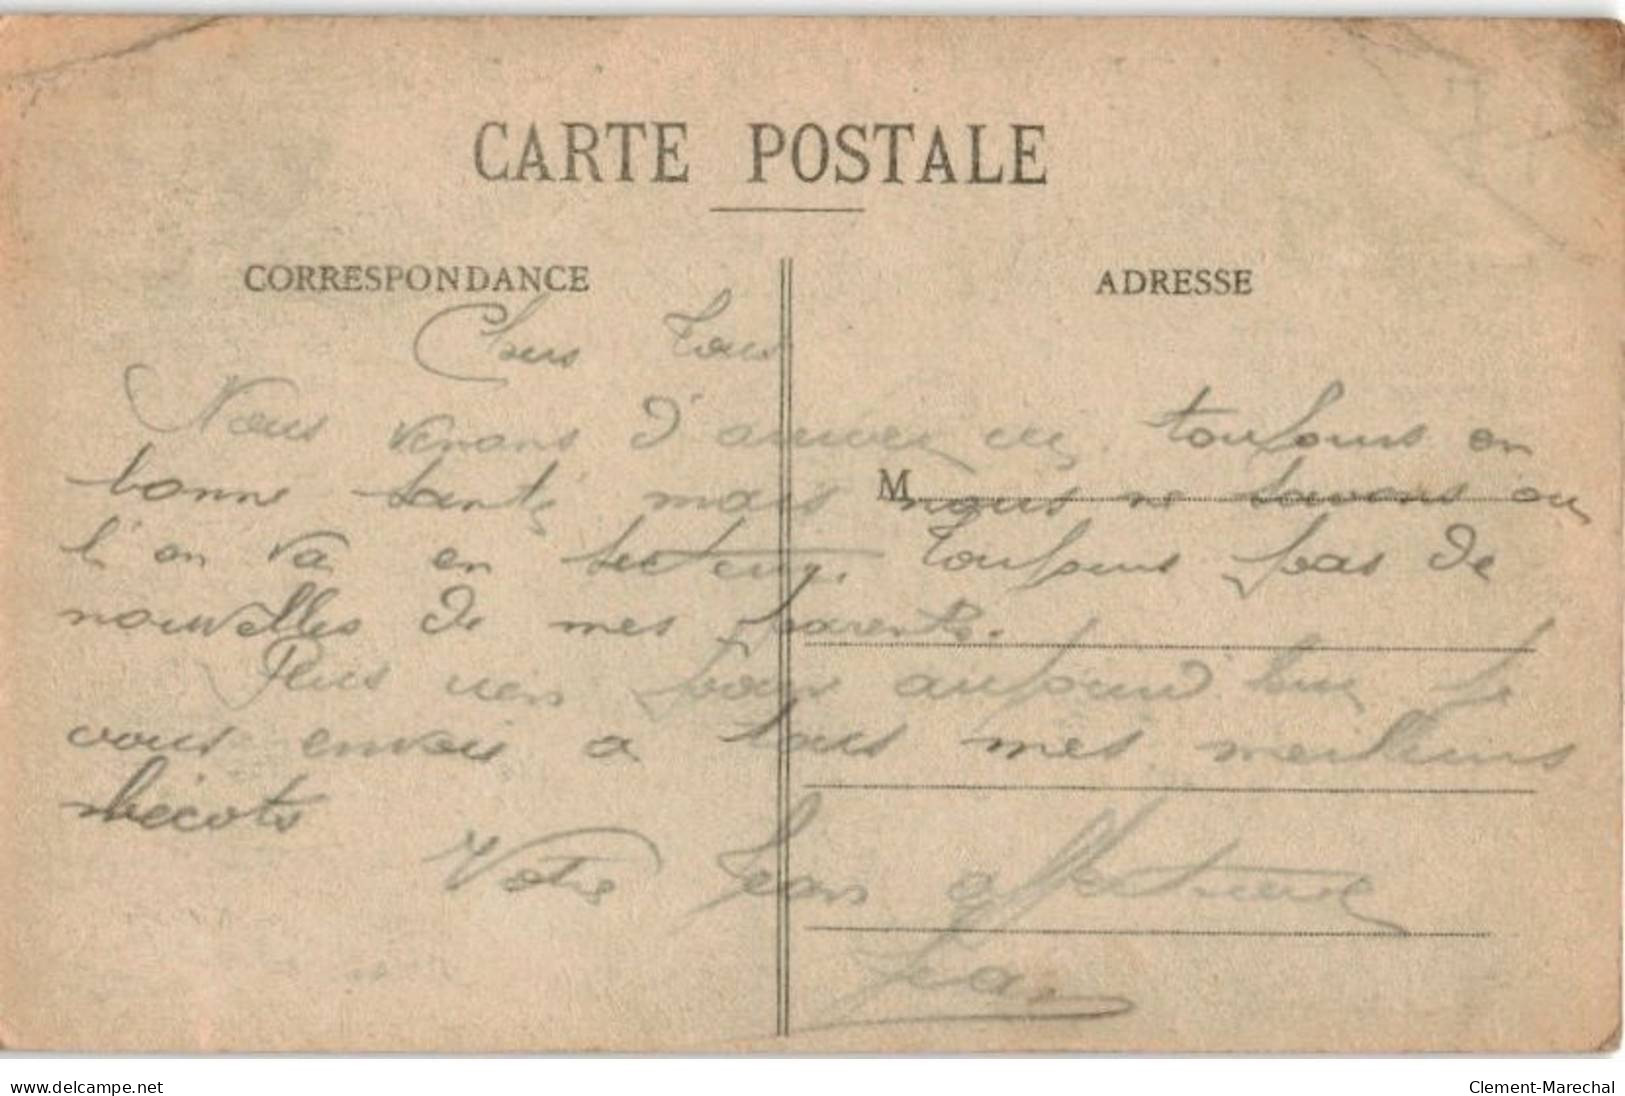 CARTE POSTALE
CORRESPONDANCE
ADRESSE
Chers Tous
Nous venons d'arriver ici toujours en
M
bonne santé mais nous ne savons ou
l'on va en secteur. Toujours pas de
nouvelles de mes parents.
Plus rien pour aujourd'hui Je
vous envois a tous mes meilleurs
bécots
Votre Jean affectueux
Jean
www.delcampe.net
Clement-Marechal